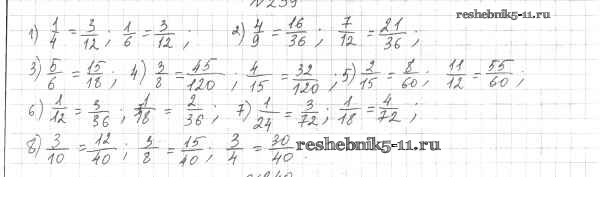 №239
reshebnik5-11.ru
1) 1/4 = 3/12; 1/6 = 3/12; 2) 4/9 = 16/36; 7/12 = 21/36;
3) 5/6 = 15/18; 4) 3/8 = 45/120; 4/15 = 32/120; 5) 2/15 = 8/60; 11/12 = 55/60;
6) 1/12 = 3/36; 1/18 = 2/36; 7) 1/24 = 3/72; 1/18 = 4/72;
8) 3/10 = 12/40; 3/8 = 15/40; 3/4 = 30/40. reshebnik5-11.ru